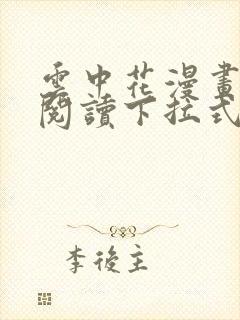 雲中花漫畫
閱讀下拉式
李後主